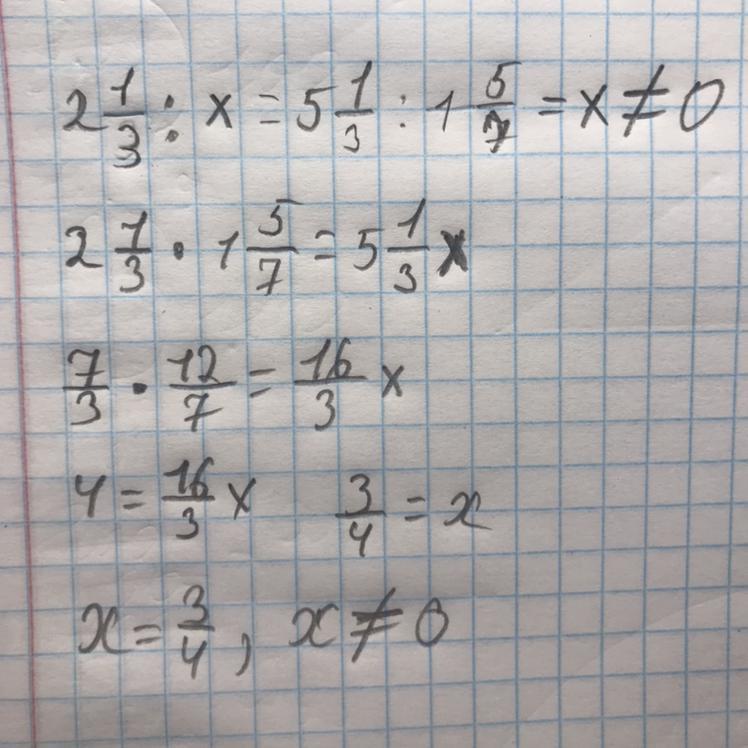 2 1/3 : x = 5 1/3 : 1 5/7 = x ≠ 0
2 1/3 · 1 5/7 = 5 1/3 x
7/3 · 12/7 = 16/3 x
4 = 16/3 x   3/4 = x
x = 3/4 , x ≠ 0